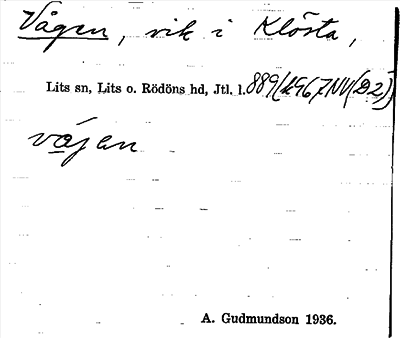 Vågen, vik i Klösta,
Lits sn, Lits o. Rödöns hd, Jtl. l. 889(19G7NV(D2))
vájen
A. Gudmundson 1936.